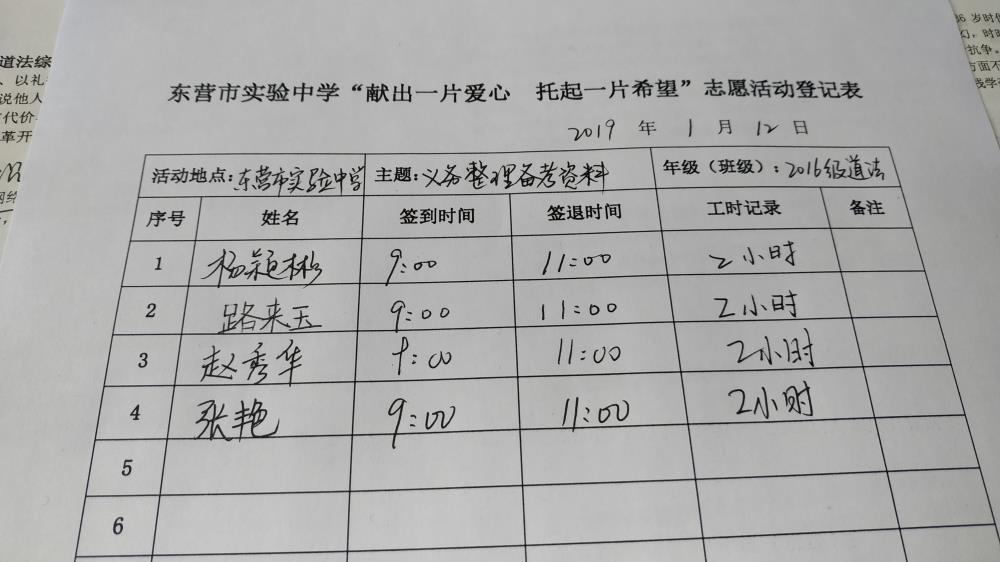 道法综
、以礼
说他人
代价
革开
网络
36 岁时
幻，时时
抗争。
方面不
东营市实验中学“献出一片爱心 托起一片希望”志愿活动登记表
2019 年 1 月 12 日
活动地点：东营市实验中学 主题：义务整理备考资料 年级（班级）：2016级道法
序号 姓名 签到时间 签退时间 工时记录 备注
1 杨颖彬 9:00 11:00 2小时
2 路来玉 9:00 11:00 2小时
3 赵秀华 9:00 11:00 2小时
4 张艳 9:00 11:00 2小时
5
6